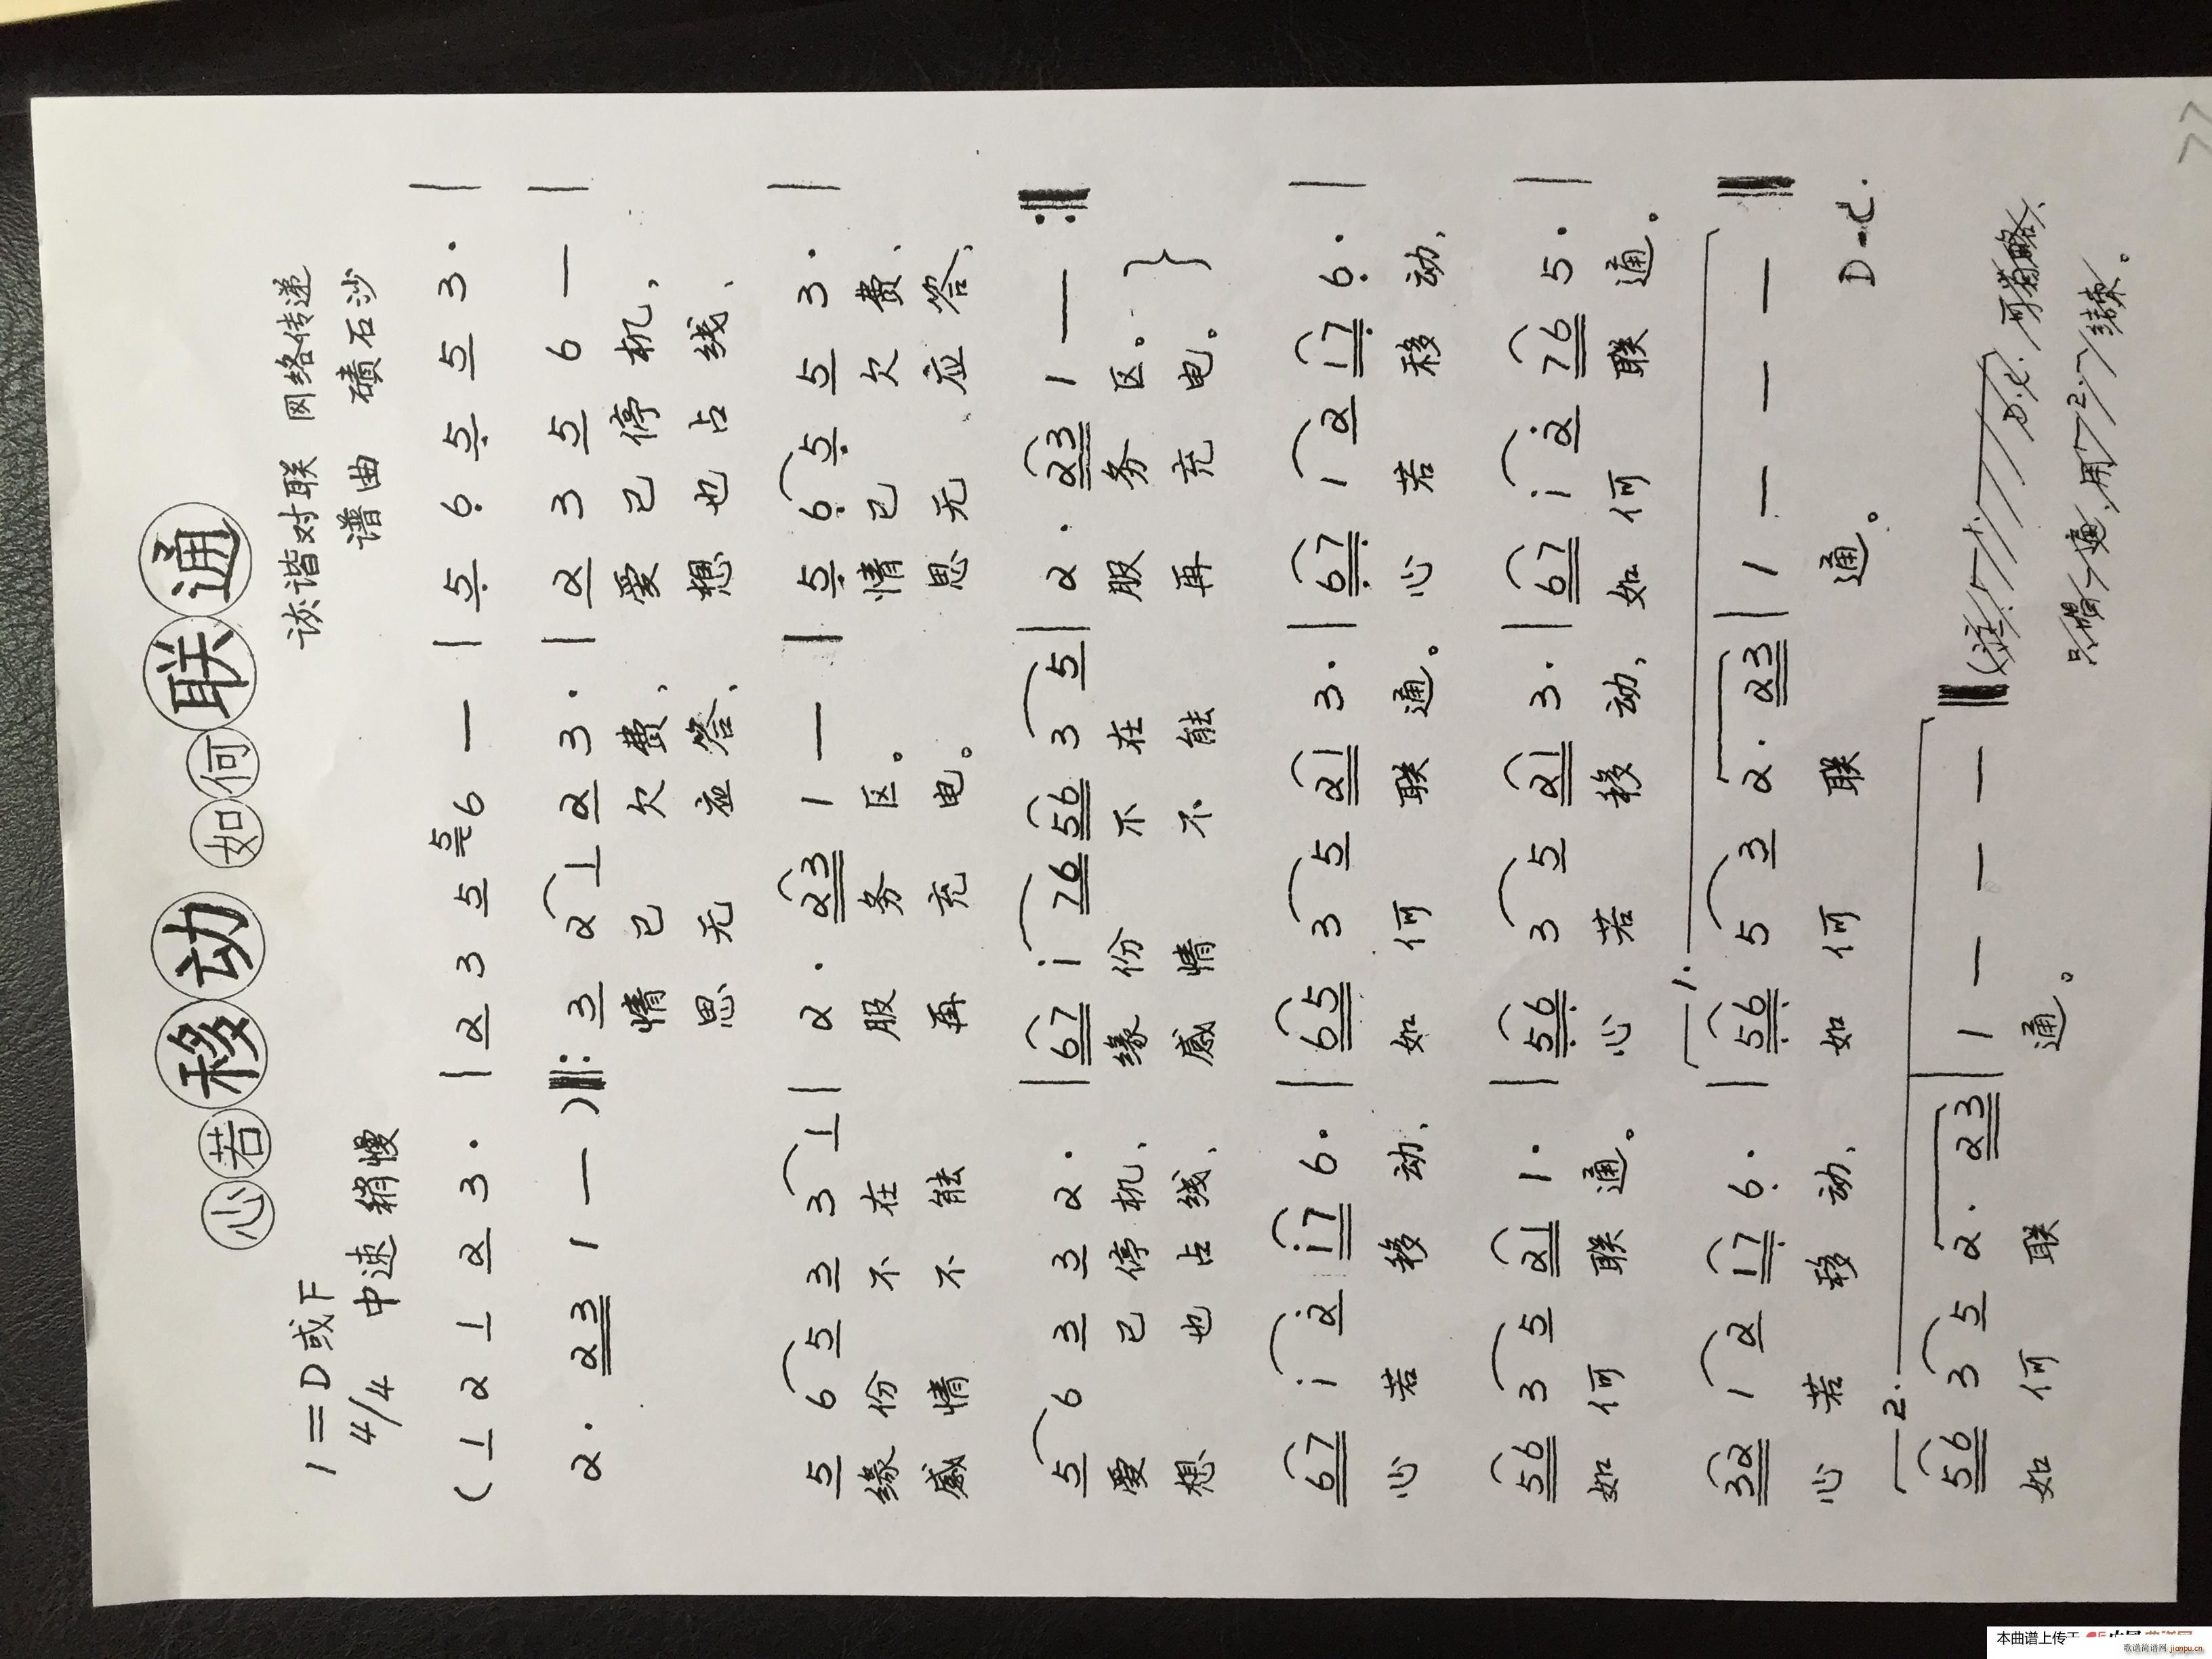 心若移动 如何联通
1=D或F 诙谐对联 网络传递
4/4 中速 稍慢 谱曲 碛石沙
(1 2 1 2 3· | 2 3 5 5 6 — | 5 6 5 5 3· |
2· 23 1 — )‖: 3 2 1 2 3· | 2 3 5 6 — |
情已欠费、 爱已停机,
思无应答、 想也占线、
5 6 5 3 3 1 | 2· 23 1 — | 5 6 5 5 3· |
缘份不在 服务区。 情已欠费、
感情不能 再充电。 思无应答、
5 6 3 3 2· | 67 i 76 56 3 5 | 2· 23 1 — :‖
爱已停机、 缘份不在 服务区。
想也占线、 感情不能 再充电。 }
67 i 2 i7 6· | 65 3 5 21 3· | 67 1 2 17 6· |
心若移动、 如何联通。 心若移动、
56 3 5 21 1· | 56 3 5 21 3· | 67 i 2 76 5· |
如何联通。 心若移动, 如何联通。
1.
32 1 2 17 6· | 56 5 3 2· 23 | 1 — — — ‖
心若移动、 如何联通。 D-C.
2.
56 3 5 2· 23 | 1 — — — ‖
如何联通。
77
本曲谱上传于
歌谱简谱网 jianpu.cn